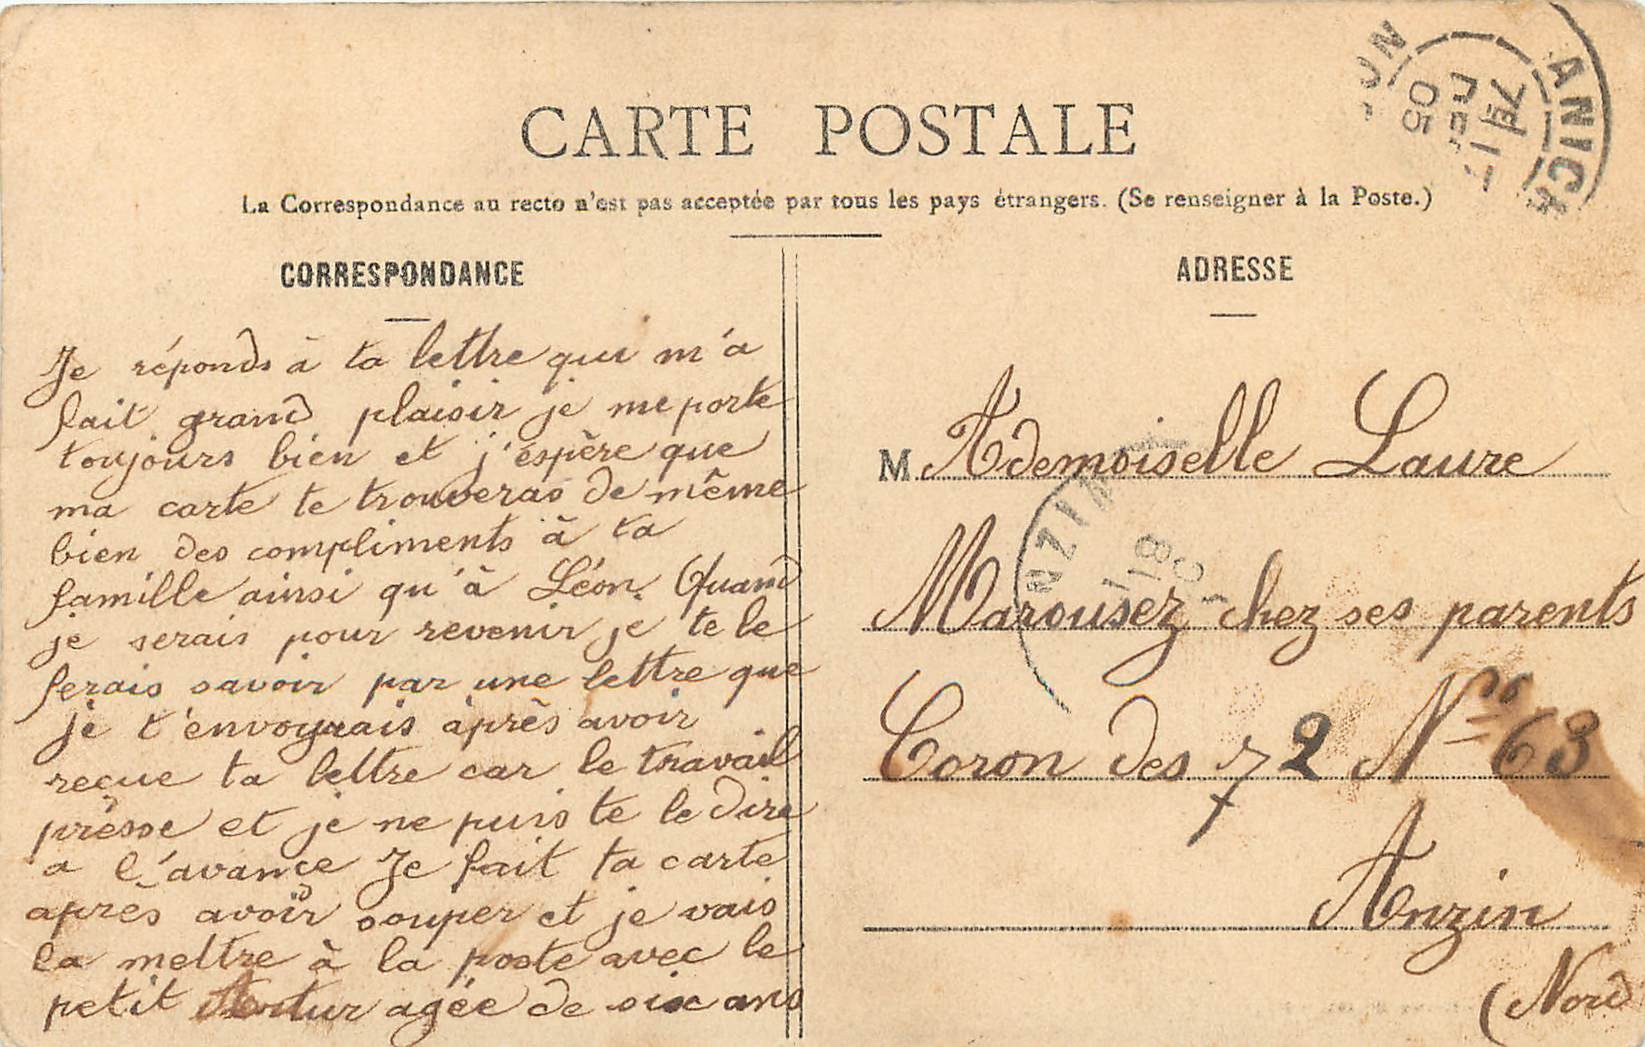 CARTE POSTALE
La Correspondance au recto n'est pas acceptée par tous les pays étrangers. (Se renseigner à la Poste.)
CORRESPONDANCE
Je réponds à ta lettre qui m'a
fait grand plaisir je me porte
toujours bien et j'éspère que
ma carte te trouveras de même
bien des compliments à ta
famille ainsi qu'à Léon. Quand
je serais pour revenir je te le
ferais savoir par une lettre que
je t'envoyrais après avoir
reçue ta lettre car le travail
présse et je ne puis te le dire
a l'avance Je fait ta carte
apres avoir souper et je vais
la mettre à la poste avec le
petit Artur agée de six ans
ADRESSE
M Ademoiselle Laure
Marousez chez ses parents
Coron des 72 Nos 63
Anzin
(Nord
ANICH
05
NZIN
18